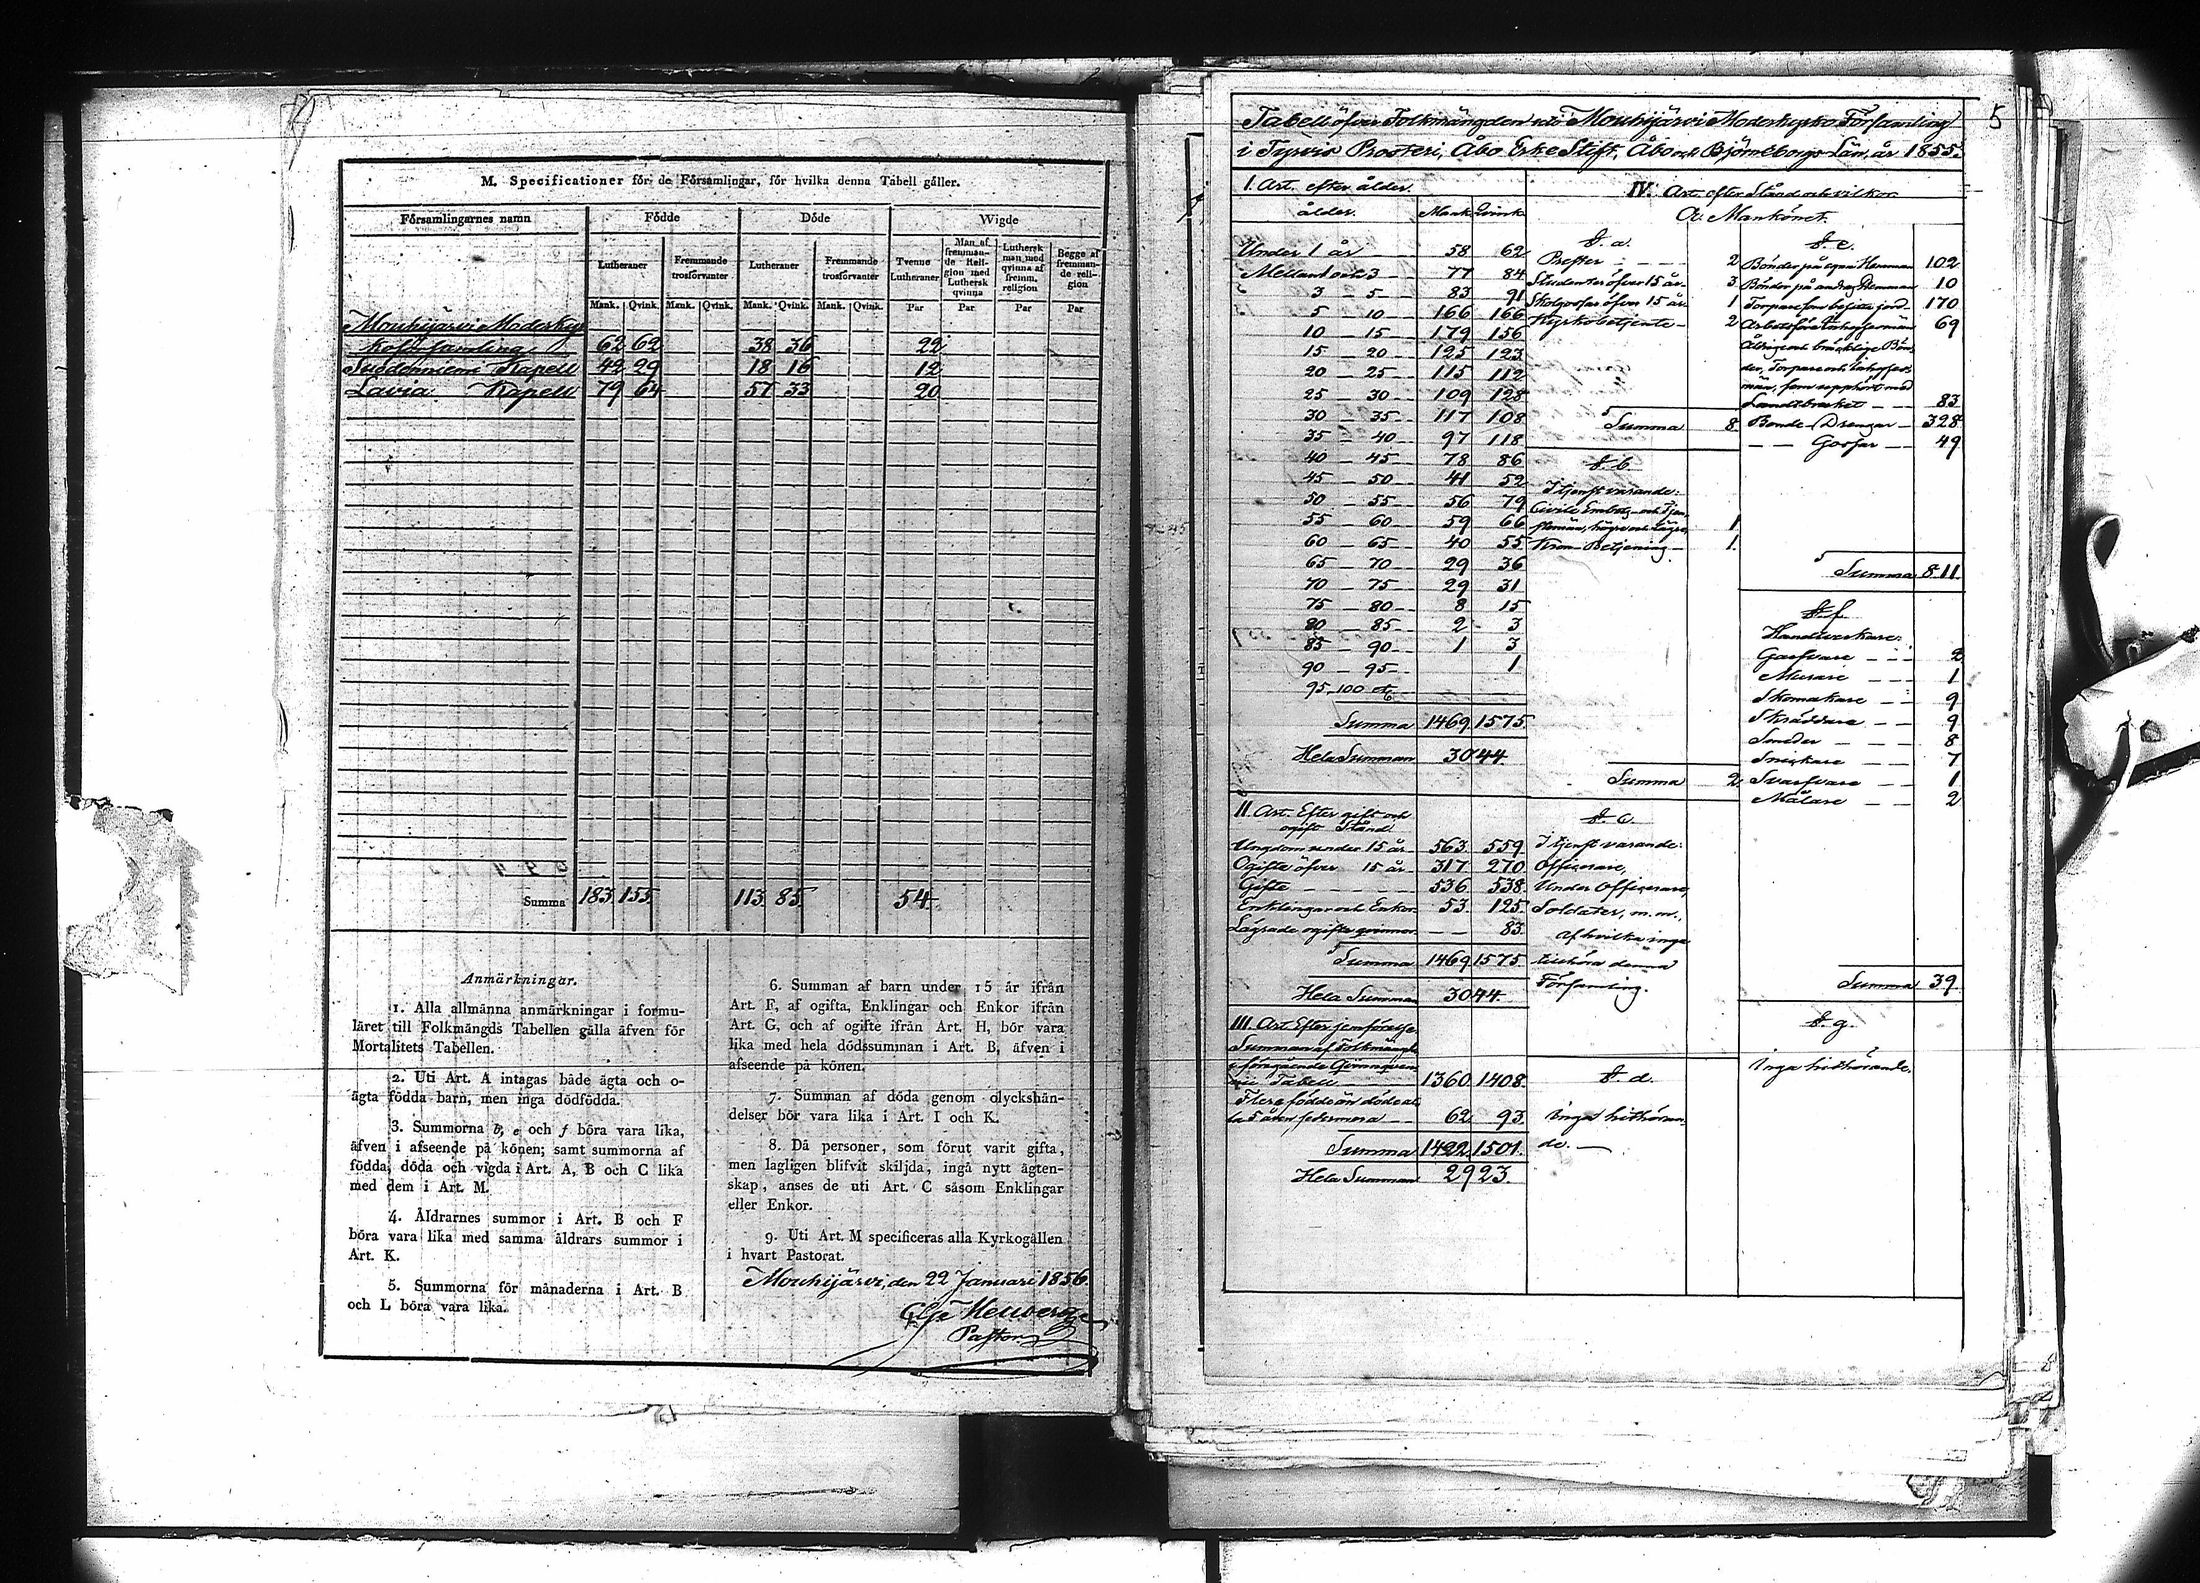 M. Specificationer för de Församlingar, för hvilka denna Tabell gäller.
Församlingarnes namn Födde Döde Wigde
Lutheraner Fremmande trosförvanter Lutheraner Fremmande trosförvanter Tvenne Lutheraner Man af fremmande Religion med Luthersk qvinna Luthersk man med qvinna af fremm. religion Begge af fremmande religion
Mank. Qvink. Mank. Qvink. Mank. Qvink. Mank. Qvink. Par Par Par Par
Mouhijärvi Moderkyr
koförsamling 62 62 38 36 22
Suodenniemi Kapell 42 29 18 16 12
Lavia Kapell 79 64 57 33 20
Summa 183 155. 113. 85. 54.
Anmärkningar.
1. Alla allmänna anmärkningar i formu-
läret till Folkmängds Tabellen gälla äfven för
Mortalitets Tabellen.
2. Uti Art. A intagas både ägta och o-
ägta födda barn, men inga dödfödda.
3. Summorna b, e och f böra vara lika,
äfven i afseende på könen; samt summorna af
födda, döda och vigda i Art. A, B och C lika
med dem i Art. M.
4. Åldrarnes summor i Art. B och F
böra vara lika med samma åldrars summor i
Art. K.
5. Summorna för månaderna i Art. B
och L böra vara lika.
6. Summan af barn under 15 år ifrån
Art. F, af ogifta, Enklingar och Enkor ifrån
Art. G, och af ogifte ifrån Art. H, bör vara
lika med hela dödssumman i Art. B, äfven i
afseende på könen.
7. Summan af döda genom olyckshän-
delser bör vara lika i Art. I och K.
8. Då personer, som förut varit gifta,
men lagligen blifvit skiljda, ingå nytt ägten-
skap, anses de uti Art. C såsom Enklingar
eller Enkor.
9. Uti Art. M specificeras alla Kyrkogällen
i hvart Pastorat.
Mouhijärvi, den 22 Januari 1856.
Pastor
5
Tabell öfver Folkmängden uti Mouhijärvi Moderkyrko Församling
i Tyrvis Prosteri, Åbo Erke Stift, Åbo och Björneborgs Län, år 1855.
I. Art. efter ålder.
ålder. Mank. Qvink.
Under 1 år 58 62
Mellan 1 och 3 77 84
3 - 5 83 91
5 - 10 166 166
10 - 15 179 156
15 - 20 125 123
20 - 25 115 112
25 - 30 109 128
30 - 35 117 108
35 - 40 97 118
40 - 45 78 86
45 - 50 41 52
50 - 55 56 79
55 - 60 59 66
60 - 65 40 55
65 - 70 29 36
70 - 75 29 31
75 - 80 8 15
80 - 85 2 3
85 - 90 1 3
90 - 95 1
95-100 etc
Summa 1469 1575.
Hela Summan 3044.
II. Art. Efter gift och
ogift Stånd.
Ungdom under 15 år 563. 559.
Ogifte öfver 15 år 317 270
Gifte 536 538.
Enklingar och Enkor 53. 125.
Lägrade ogifte qvinnor - - 83.
Summa 1469 1575.
Hela Summan 3044.
III. Art. Efter jemförelse.
Summan af Folkmängd
i föregående
Tabell 1360 1408.
Flere födde än döde al-
la 5 åren sedermera 62 93.
Summa 1422 1501.
Hela Summan 2923.
IV. Art. efter Stånd och vilkor.
A. Mankönet.
§. a.
Prester 2
Studenter öfver 15 år 3
Skolgossar öfver 15 år 1
Kyrkobetjente 2
Summa 8.
§. b.
I tjenst varande:
Civile Embets- och Tjen-
stemän, högre och lägre 1
Kron Betjening 1.
Summa 2.
§. c.
I tjenst varande:
Officerare,
Under Officerare,
Soldater, m.m.,
af hvilka inga
tillhöra denna
Församling.
§. d.
Inga hithöran-
de.
§. e.
Bönder på egna Hemman 102
Bönder på andras Hemman 10
Torpare som besitta jord 170
Arbetsföre Inhysesmän 69
Åldrige och bräcklige Bön-
der, Torpare och Inhyses-
män, som upphört med
Landtbruket 83
Bonde-Drengar 328
- - Gossar 49
Summa 811
§. f.
Handtverkare:
Garfvare 2
Murare 1
Skomakare 9
Skräddare 9
Smeder 8
Snickare 7
Svarfvare 1
Målare 2
Summa 39
§. g.
Inga hithörande.